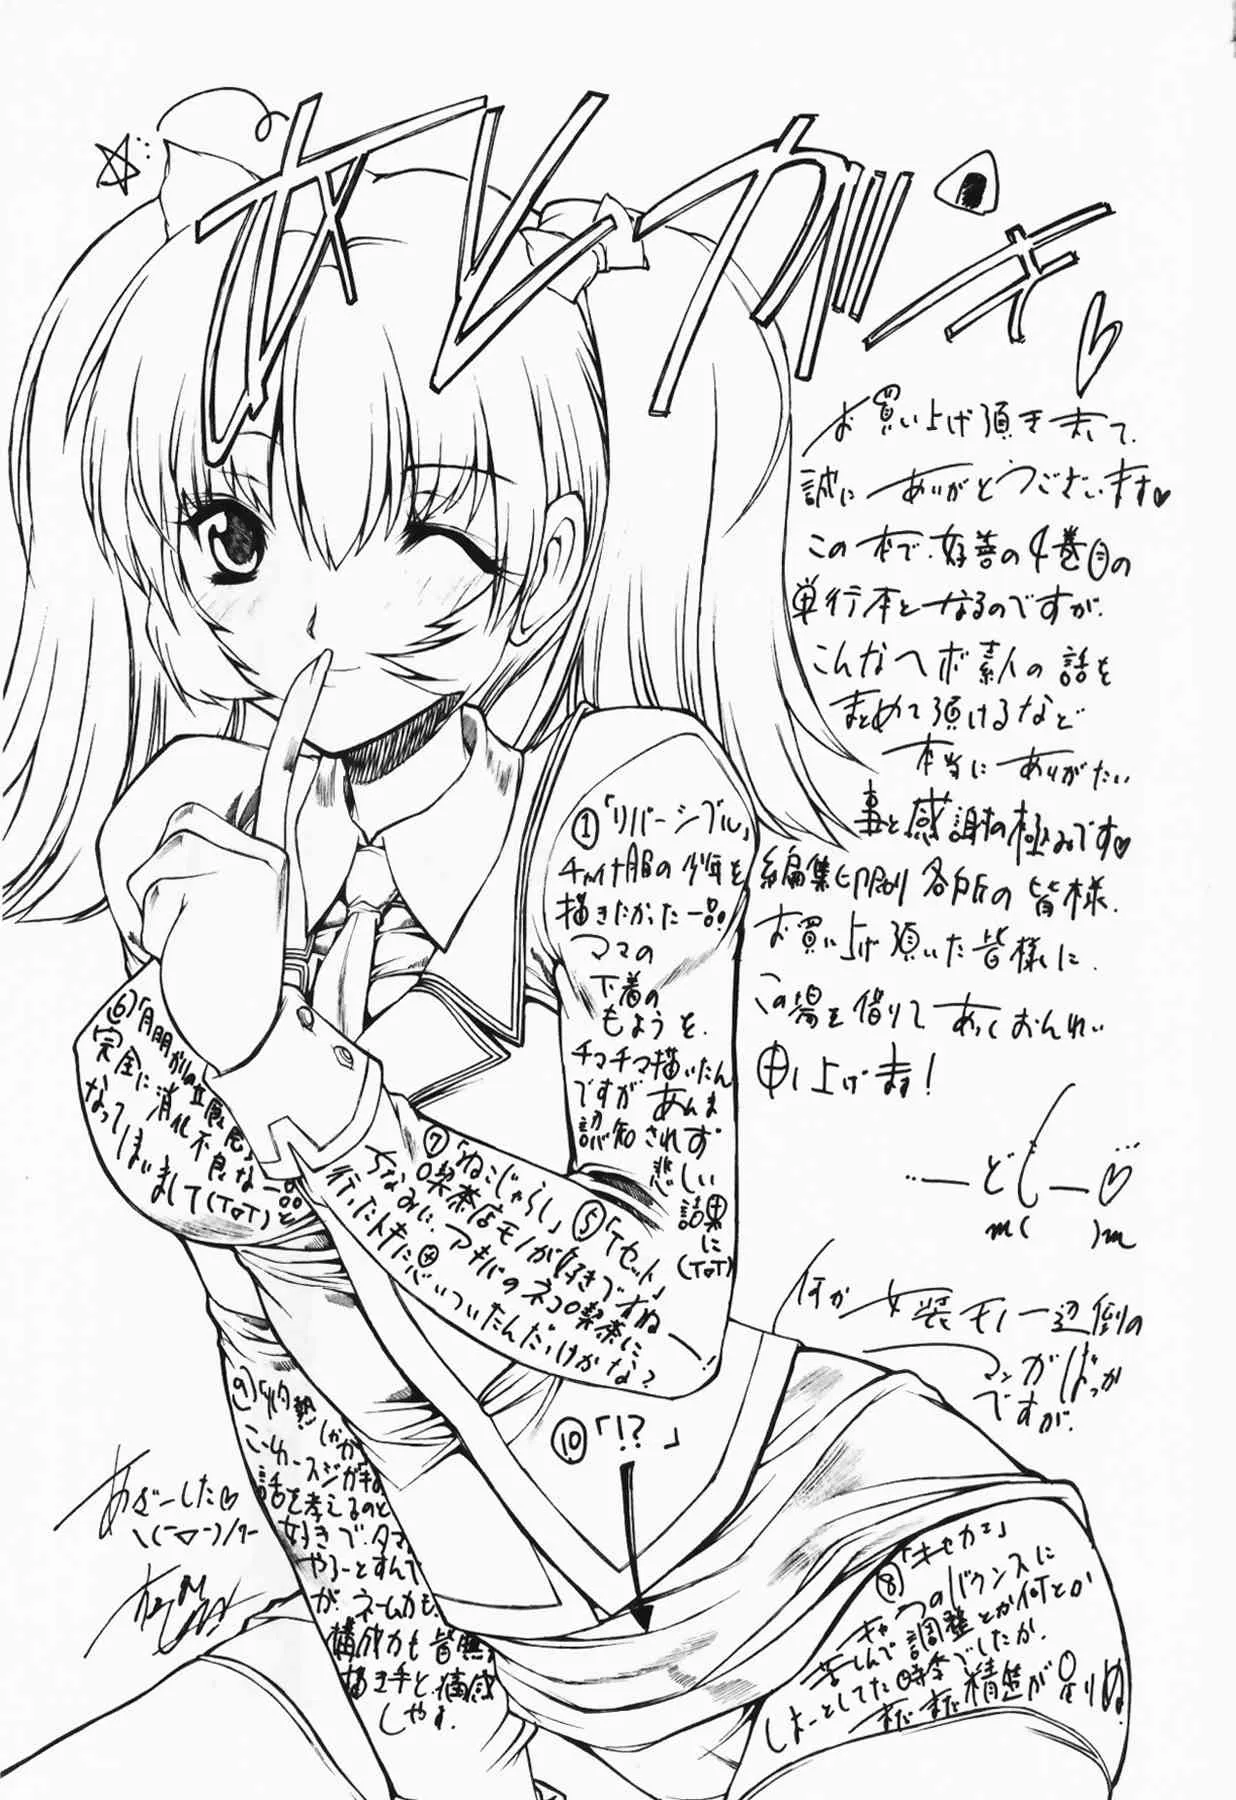 オレガキ
お買い上げ頂きまして、
誠にありがとうございます♥
この本で、好善の4巻目の
単行本となるのですが、
こんなヘボ素人の話を
まとめて頂けるなど
本当にありがたい
事と感謝の極みです♥
編集、印刷、各所の皆様、
お買い上げ頂いた皆様に、
この場を借りてあつくおんれい
申し上げます!
…―どもー♡…
m( )m
何か女装モノ一辺倒の
マンガばっか
ですが、
①「リバーシブル」
チャイナ服の少年を
描きたかった一品。
ママの
下着の
もようを、
チマチマ描いたん
ですが、あんま
認知されず
悲しい
結果に
(ToT)
⑤「Tセット」
⑥
完全に消化不良な一品と
なってしまいまして(ToT)
⑦「ねこじゃらし」
喫茶店モノが好きですねー!
ちなみに、アキバのネコ喫茶に
行ったトキに思いついたんだっけかな?
⑧「キセカエ」
ギャグのバウンスに
苦しんで調整とか何とか
しよーとしてた時季でしたか、
まだまだ精進が足りぬ
⑨
こーゆースジがキの
話を考えるのと
好きで、タマに
やろーとすんで
が、ネーム力も、
構成力も皆無
描き手と、痛感
しやす。
⑩「!?」
あざーした♡
\(ー▽ー)/